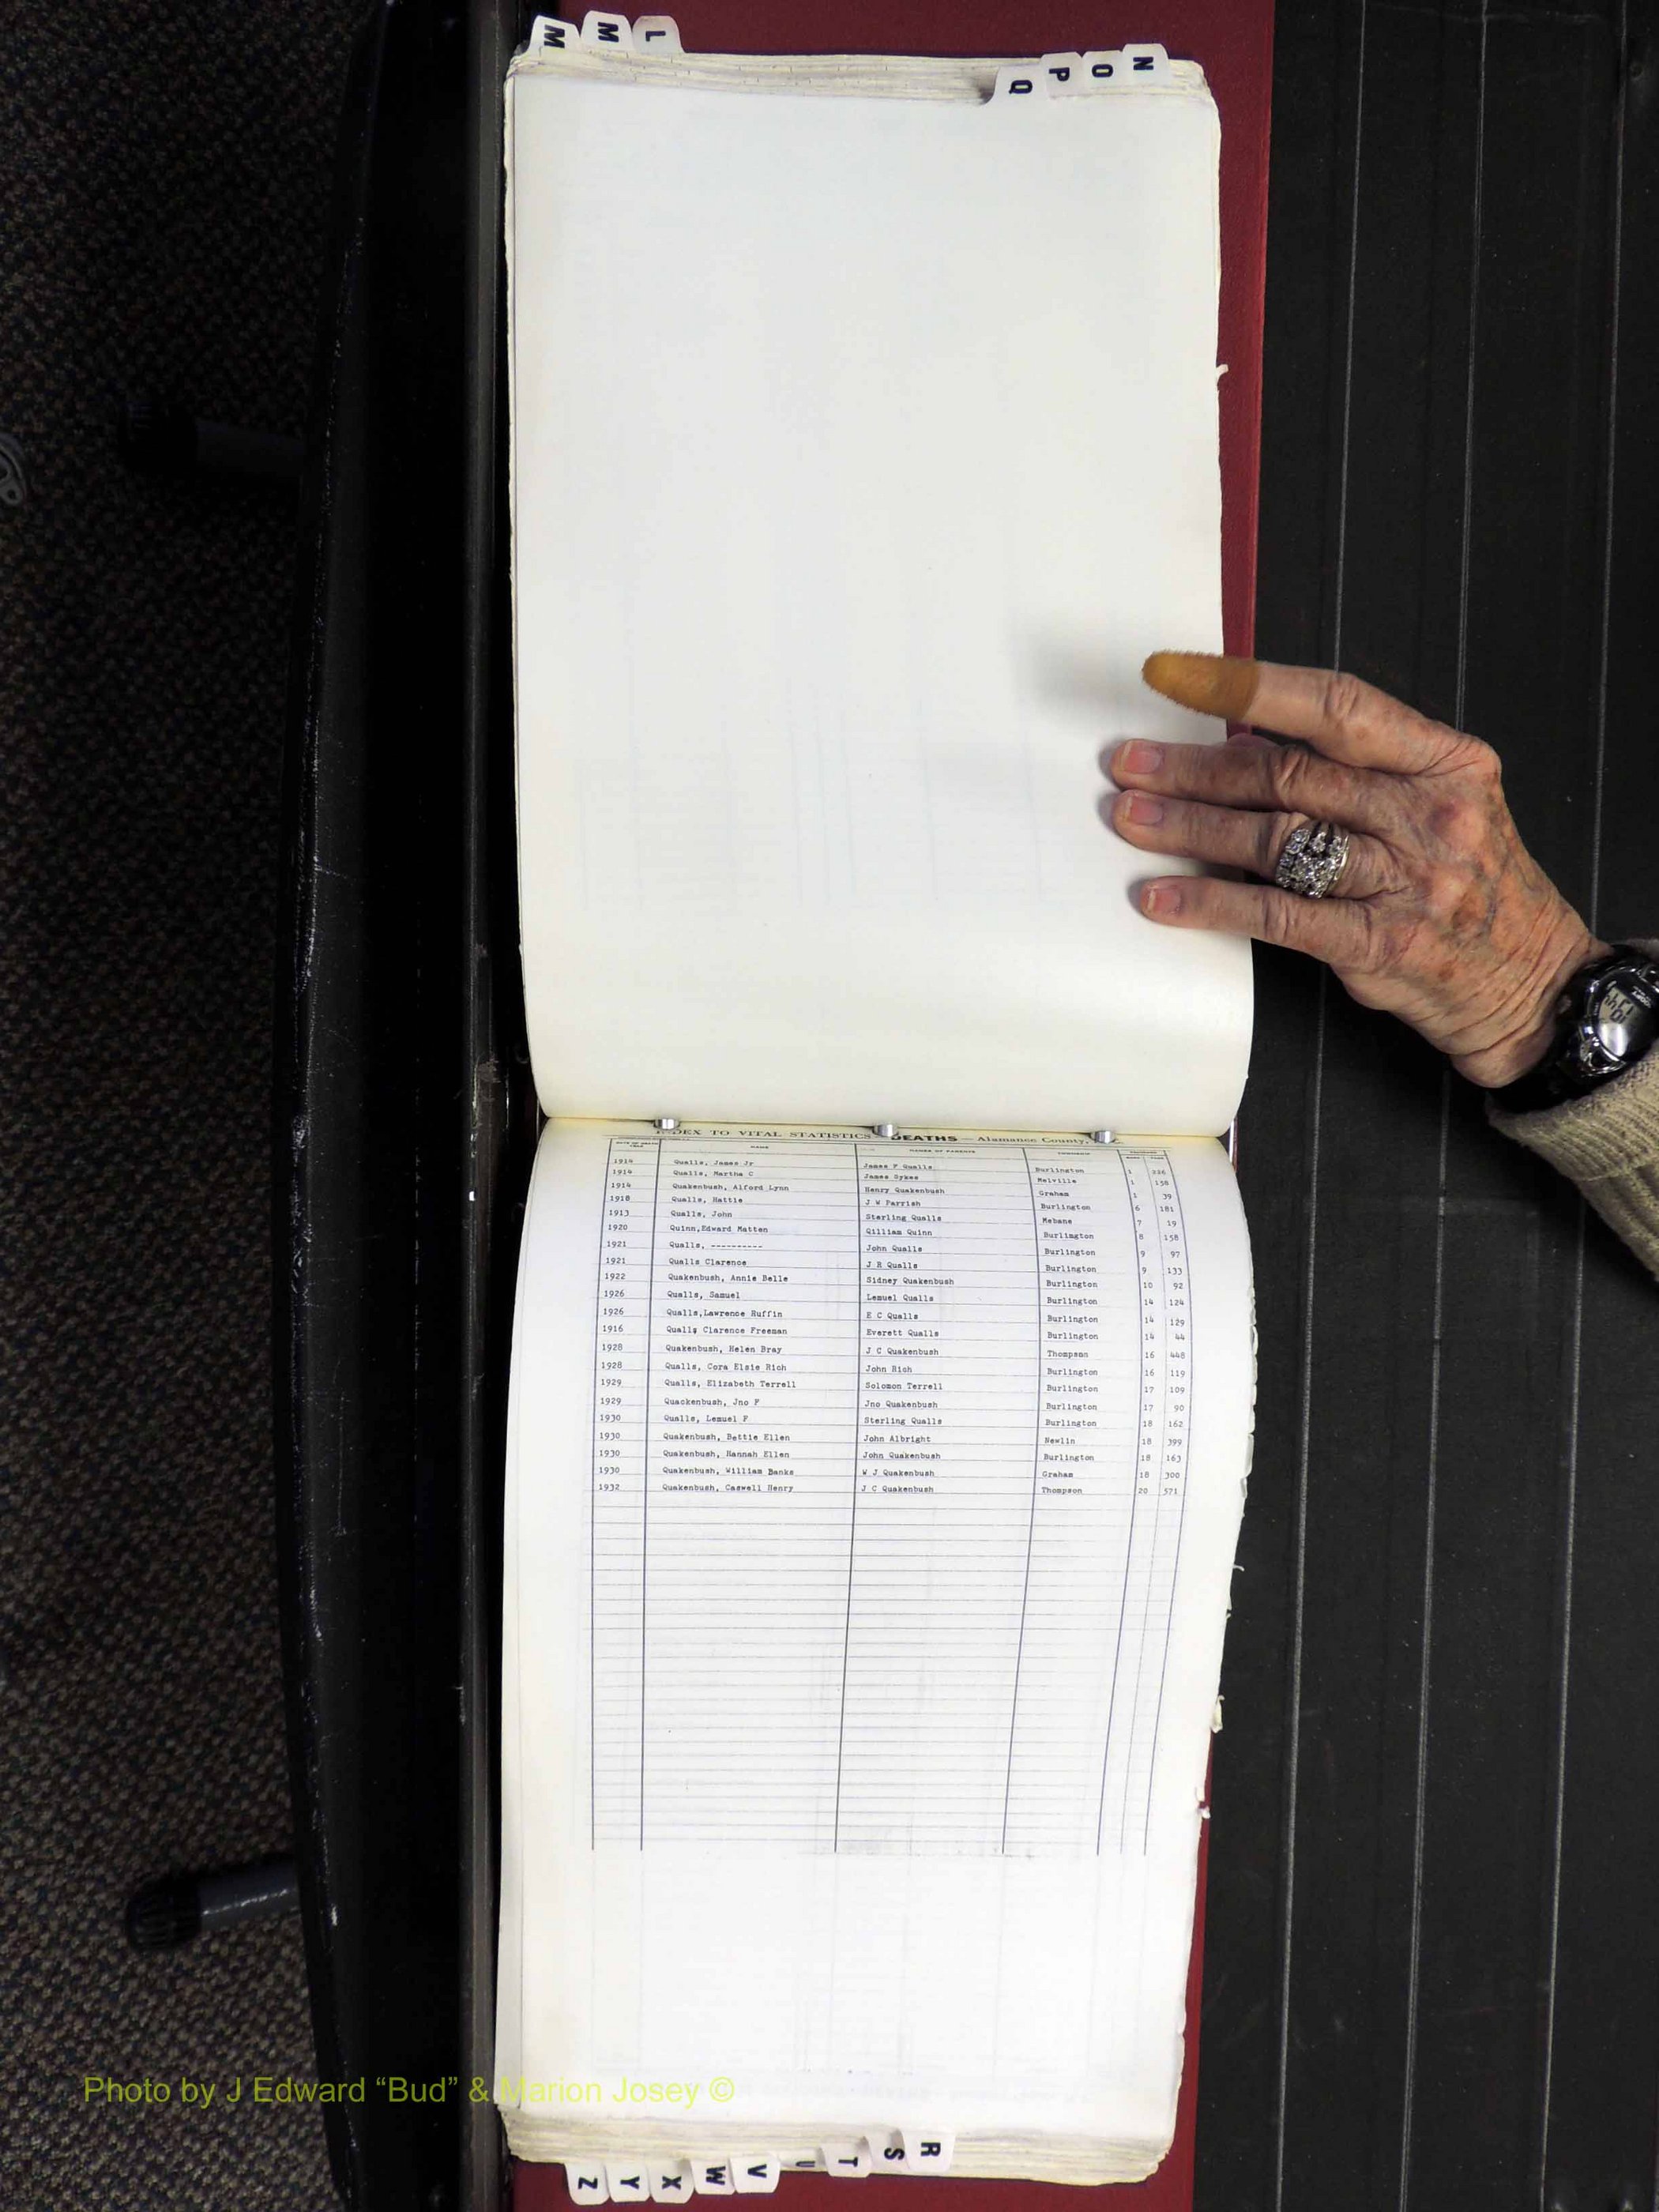 M M L
N O P Q
INDEX TO VITAL STATISTICS — DEATHS — Alamance County,
NAME NAMES OF PARENTS TOWNSHIP
1914 Qualls, James Jr James F Qualls Burlington 1 226
1914 Qualls, Martha C James Sykes Melville 1 158
1914 Quakenbush, Alford Lynn Henry Quakenbush Graham 1 39
1918 Qualls, Hattie J W Parrish Burlington 6 181
1913 Qualls, John Sterling Qualls Mebane 7 19
1920 Quinn,Edward Matten Qilliam Quinn Burlington 8 158
1921 Qualls, ---------- John Qualls Burlington 9 97
1921 Qualls Clarence J R Qualls Burlington 9 133
1922 Quakenbush, Annie Belle Sidney Quakenbush Burlington 10 92
1926 Qualls, Samuel Lemuel Qualls Burlington 14 124
1926 Qualls,Lawrence Ruffin E C Qualls Burlington 14 129
1916 Qualls Clarence Freeman Everett Qualls Burlington 14 44
1928 Quakenbush, Helen Bray J C Quakenbush Thompson 16 448
1928 Qualls, Cora Elsie Rich John Rich Burlington 16 119
1929 Qualls, Elizabeth Terrell Solomon Terrell Burlington 17 109
1929 Quackenbush, Jno F Jno Quakenbush Burlington 17 90
1930 Qualls, Lemuel F Sterling Qualls Burlington 18 162
1930 Quakenbush, Bettie Ellen John Albright Newlin 18 399
1930 Quakenbush, Hannah Ellen John Quakenbush Burlington 18 163
1930 Quakenbush, William Banks W J Quakenbush Graham 18 300
1932 Quakenbush, Caswell Henry J C Quakenbush Thompson 20 571
Photo by J Edward “Bud” & Marion Josey ©
R S T U V W X Y Z